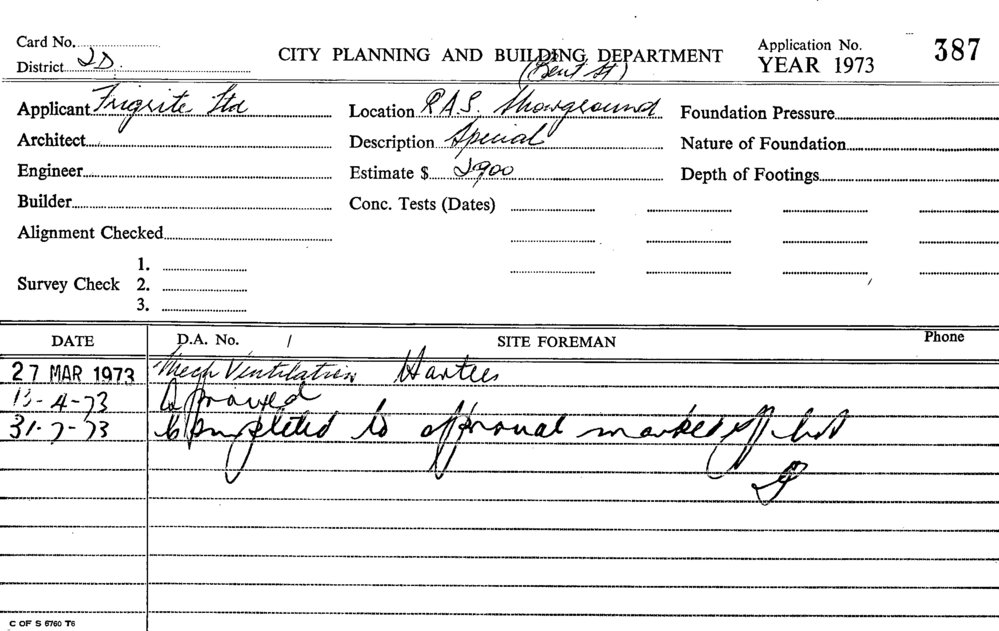 Card No.
District 2D
CITY PLANNING AND BUILDING DEPARTMENT
Application No. 387
YEAR 1973
(Bent St)
Applicant Frigrite Ltd
Location R.A.S. Showground
Foundation Pressure
Architect
Description Special
Nature of Foundation
Engineer
Estimate $ 2900
Depth of Footings
Builder
Conc. Tests (Dates)
Alignment Checked
1.
Survey Check 2.
3.
DATE D.A. No. / SITE FOREMAN Phone
27 MAR 1973 Mech Ventilation
-4-73 Approved
31-7-73 Completed to approval marked off list
C OF S 6760 T6